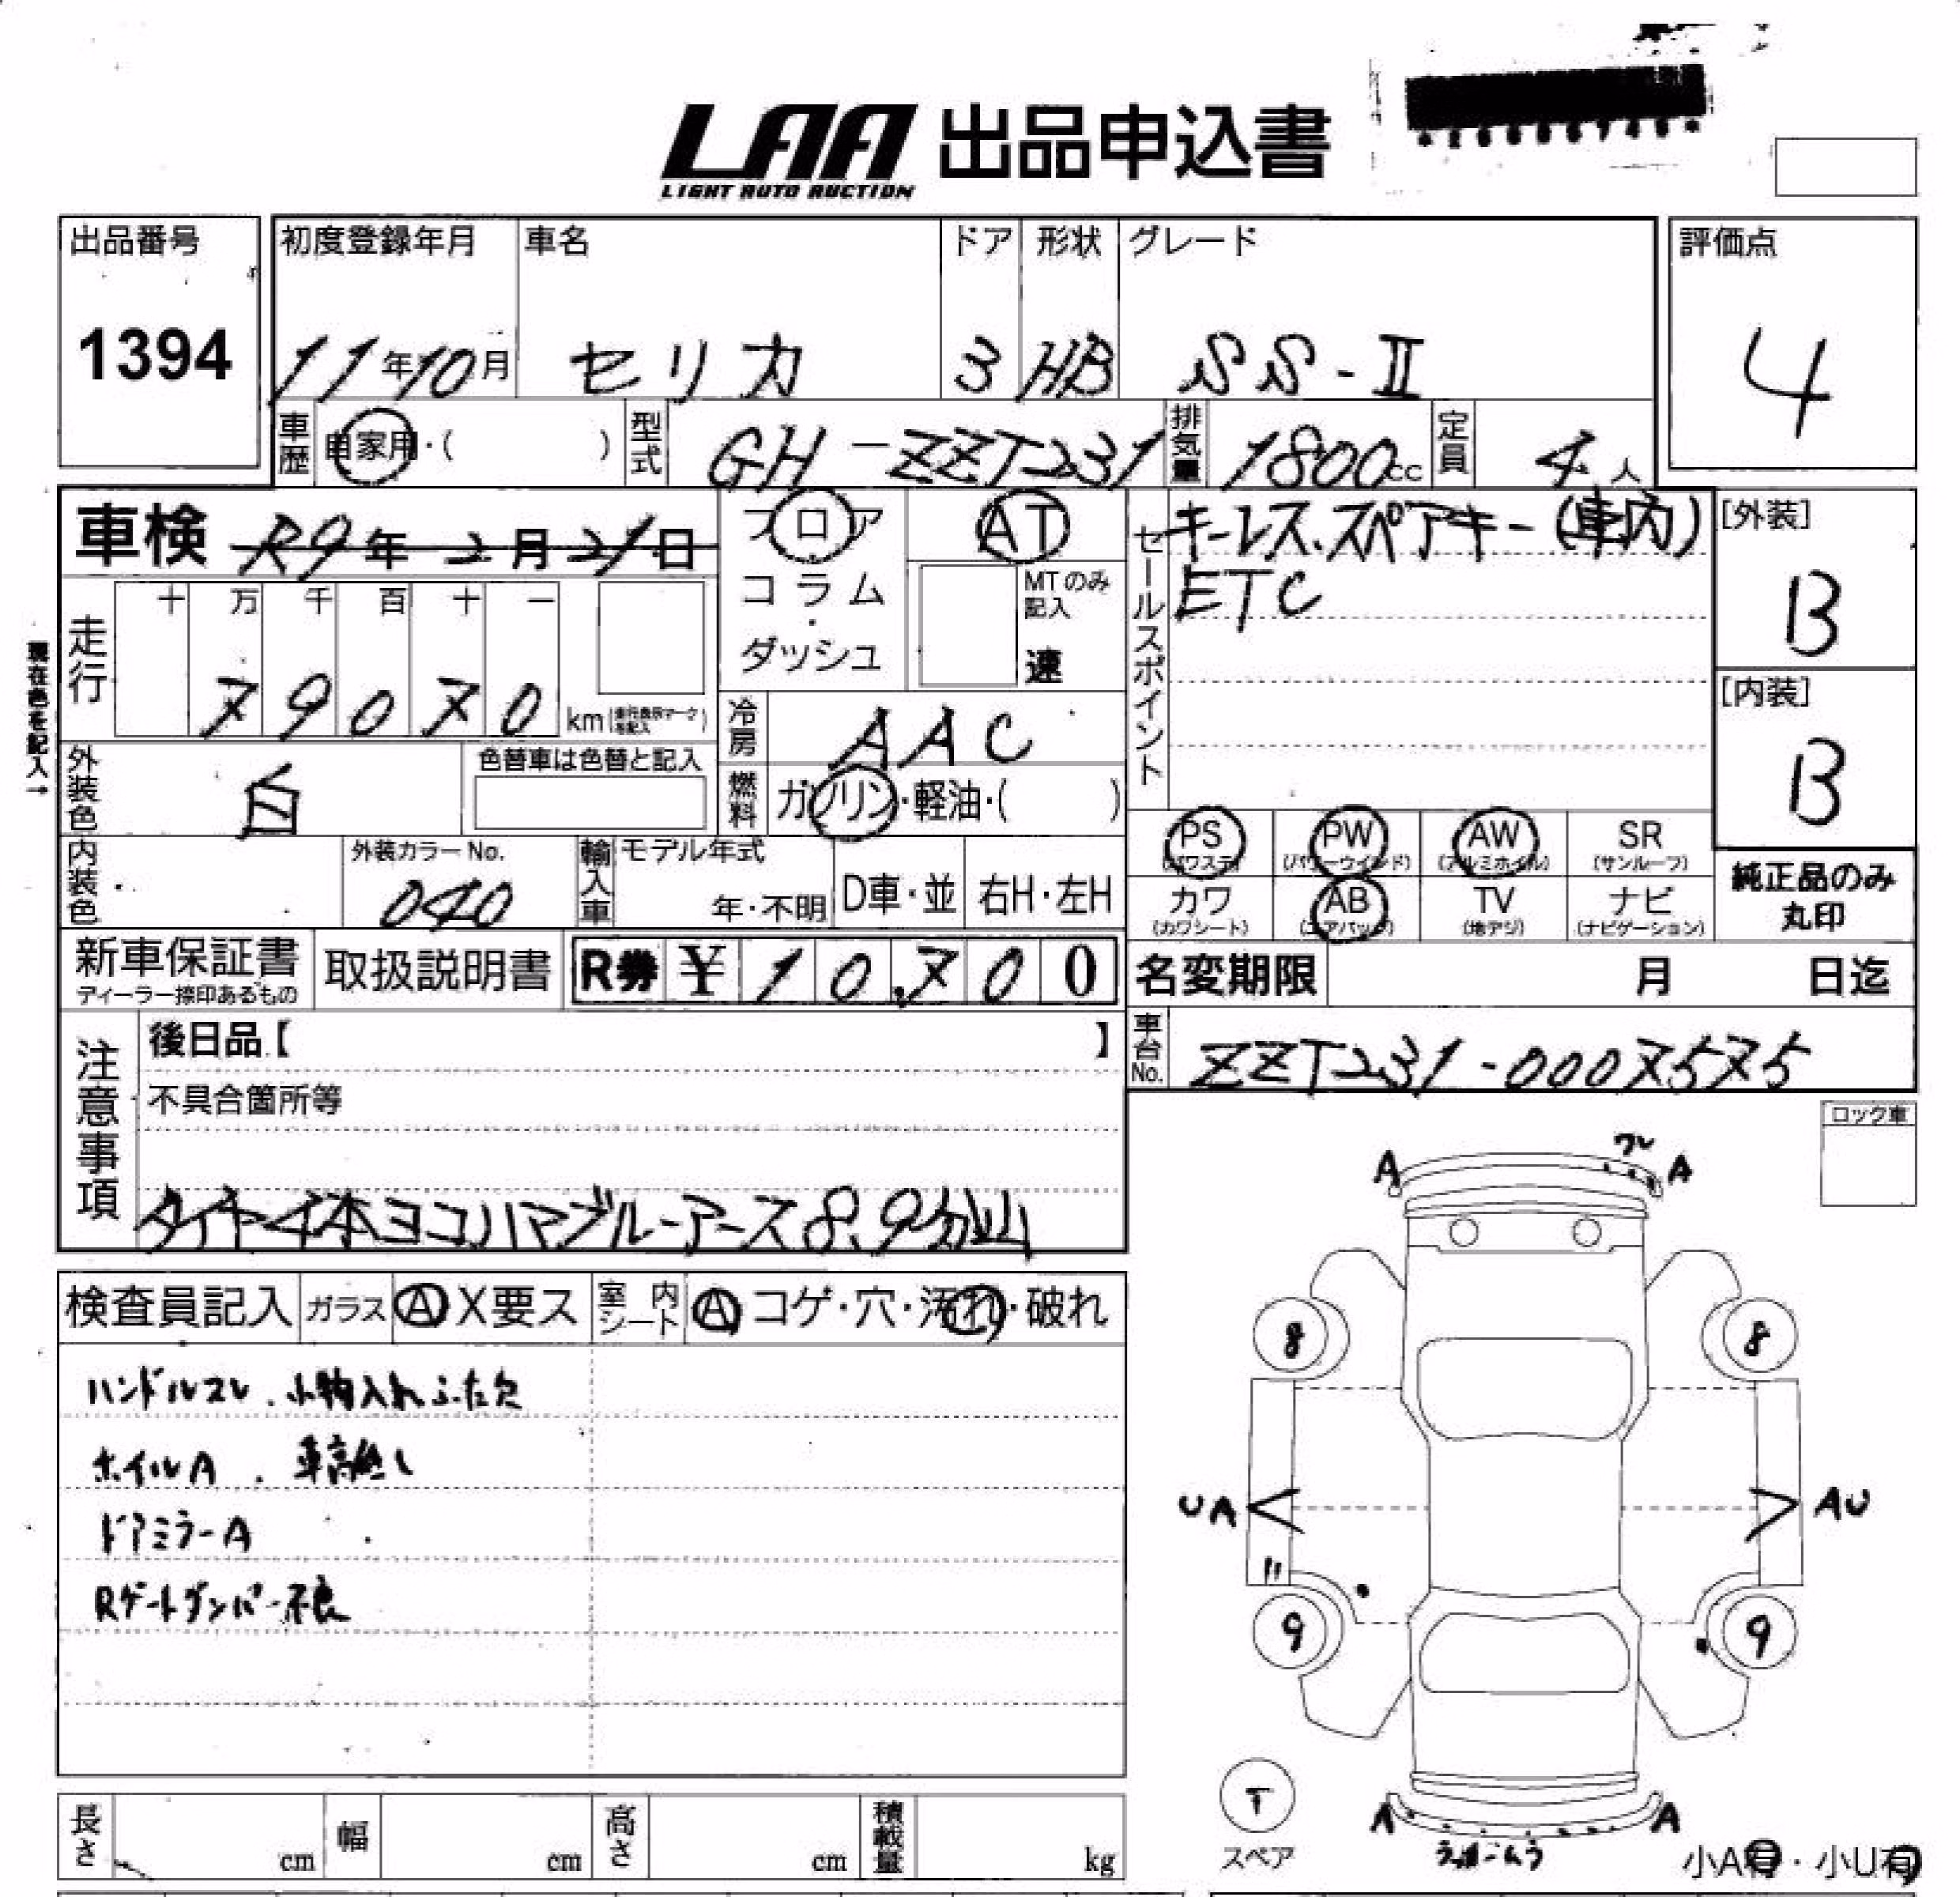 LAA 出品申込書
LIGHT AUTO AUCTION
出品番号
1394
初度登録年月
11年10月
車名
セリカ
ドア
3
形状
HB
グレード
SS-Ⅱ
評価点
4
車歴 自家用・( )
型式 GH-ZZT231
排気量 1800cc
定員 4人
車検 R9年2月21日
フロア
コラム
・
ダッシュ
AT
MTのみ
記入
速
セールスポイント
キーレス、スペアキー(車内)
ETC
[外装]
B
[内装]
B
現在色を記入→
走行
十 万 千 百 十 一
79070 km(走行表示マークを記入)
冷房 AAC
燃料 ガソリン・軽油・( )
外装色 白
色替車は色替と記入
内装色
外装カラーNo.
040
輸入車
モデル年式
年・不明
D車・並
右H・左H
PS
(パワステ)
PW
(パワーウインド)
AW
(アルミホイル)
SR
(サンルーフ)
カワ
(カワシート)
AB
(エアバッグ)
TV
(地デジ)
ナビ
(ナビゲーション)
純正品のみ
丸印
新車保証書
ディーラー捺印あるもの
取扱説明書
R券 ¥10,700
名変期限 月 日迄
車台No. ZZT231-0007575
注意事項
後日品【 】
不具合箇所等
タイヤ4本ヨコハマブルーアース8、9分山
ロック車
検査員記入
ガラス A X要ス
室内シート A コゲ・穴・汚れ・破れ
ハンドルスレ、小物入れふた欠
ホイルA、車高無し
ドアミラーA
Rゲートダンパー不良
A ワレ A
8 8
UA AU
9 9
T
スペア
A A
小A有・小U有
長さ cm
幅 cm
高さ cm
積載量 kg